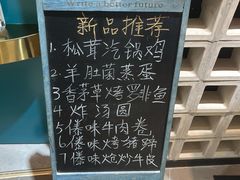 Write a better future
新品推荐
1.松茸汽锅鸡
2.羊肚菌蒸蛋
3香茅草烤罗非鱼
4炸汤圆
5傣味牛肉卷,
6傣味烤猪蹄
7傣味炝炒牛皮